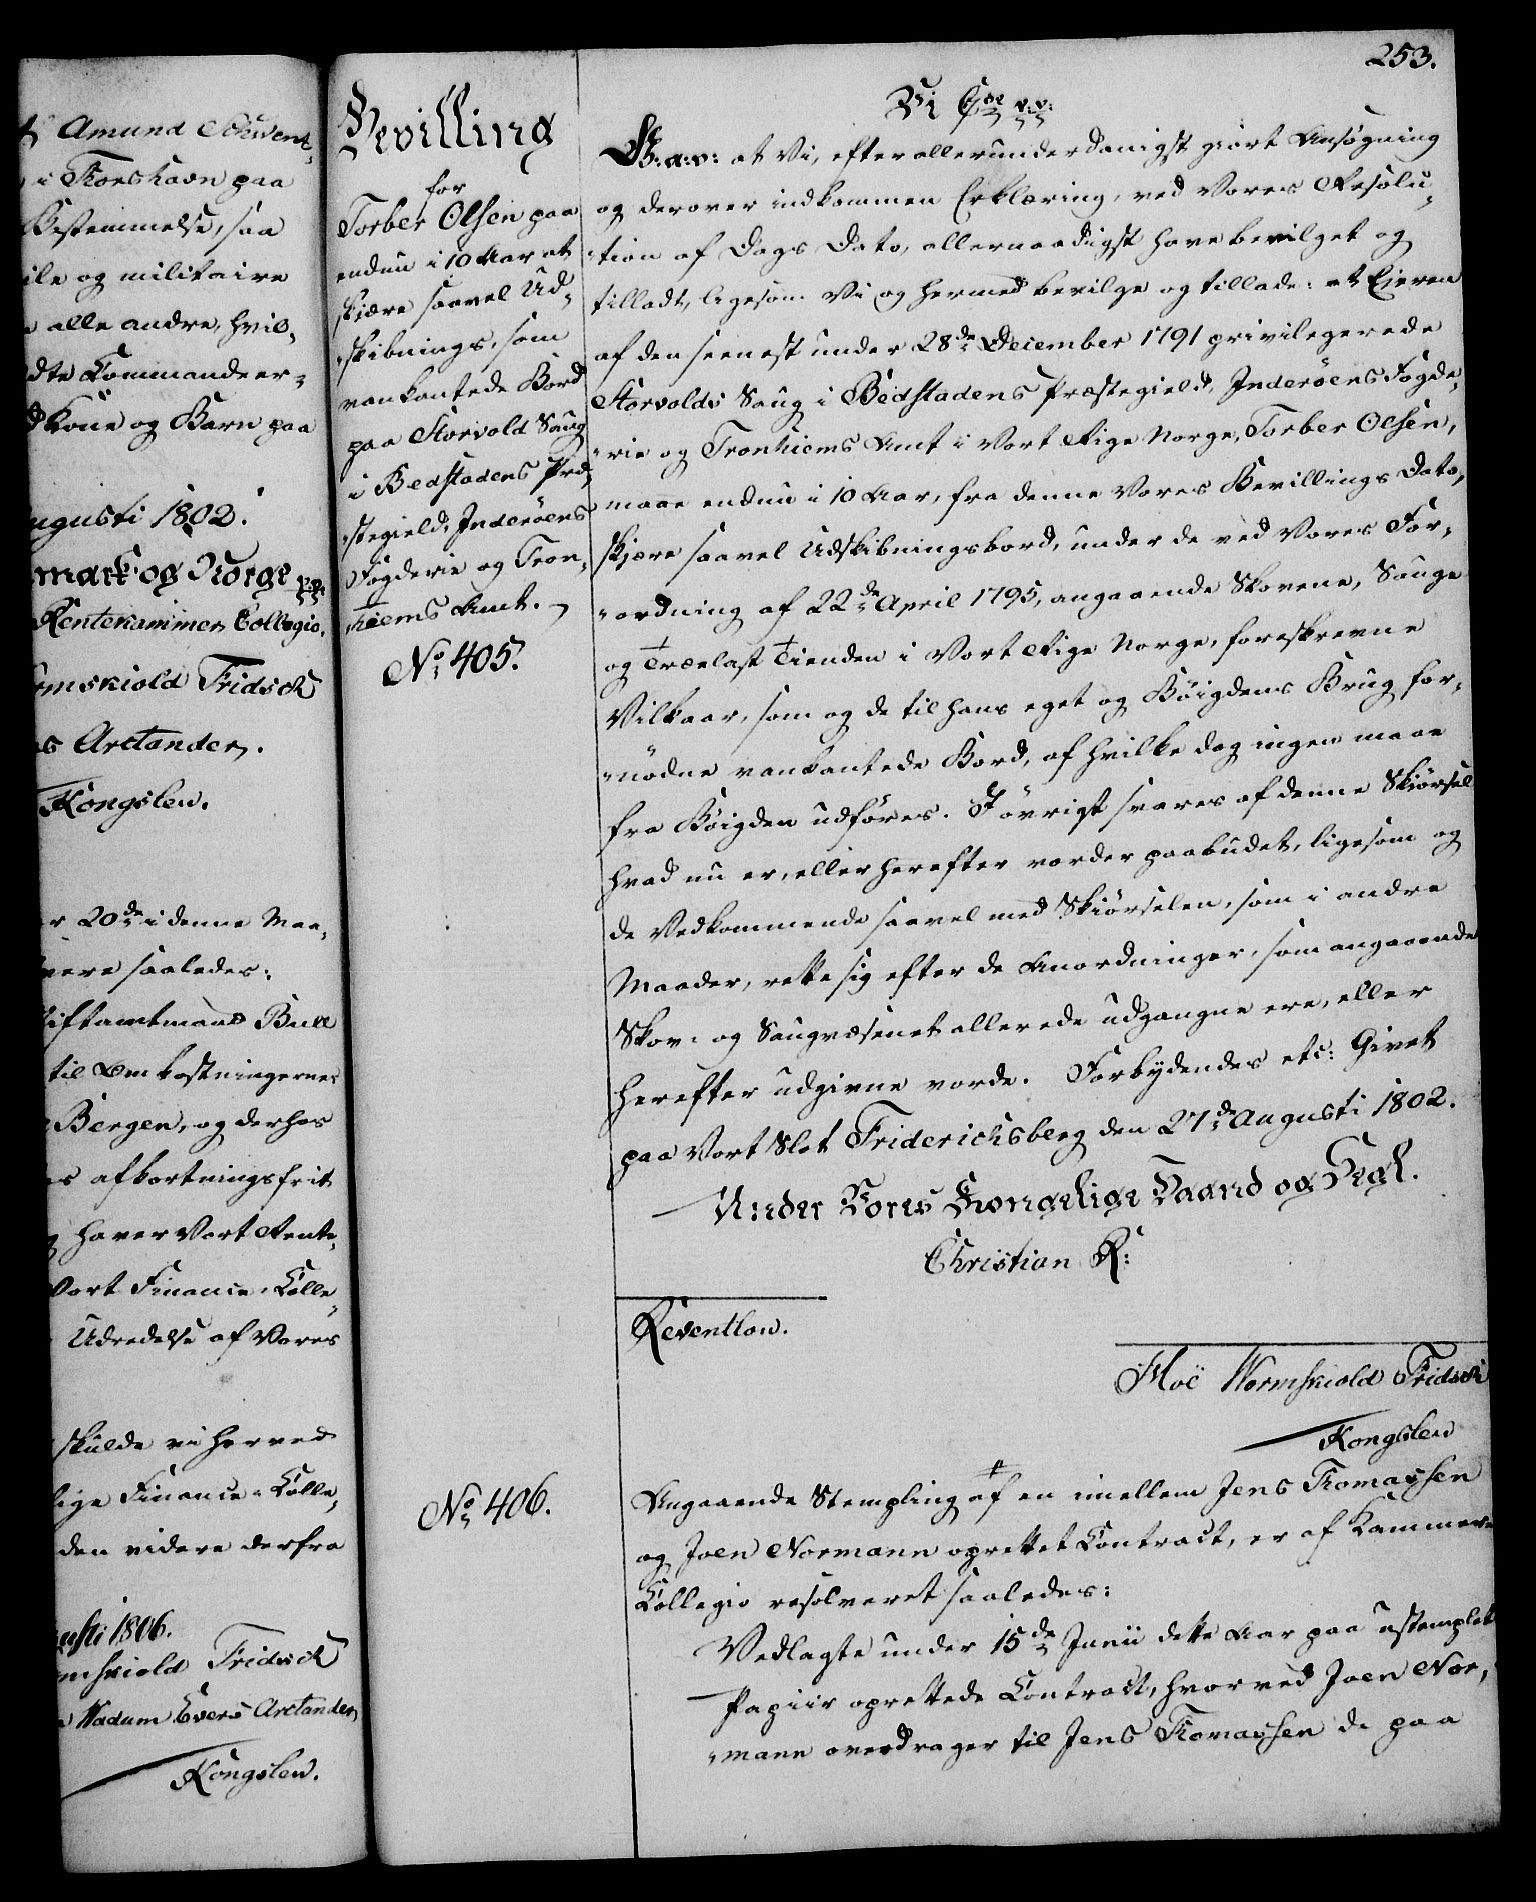 253.
t Amund Schivent-
i Thorshavn paa
Bestemmelse, saa
ile og militaire
alle andre, hvil-
dte Commandeer-
d Kone og Barn paa
ugusti 1802.
mark og Norge p.p.
Rentekammer Collegio.
rmskiold Fridsch
s Arctander.
Kongslew.
r 20de i denne Maa-
vere saaledes:
iftamtmand Bull
til Omkostningernes
Bergen, og derhos
s afkortningsfrit
g haver Vort Rente-
Vort Finance-Colle-
Udredelse af Vores
skulde vi herved
lige Finance-Colle-
den videre derfra
usti 1806.
mskiold Fridsch
Wadum Evers Arctander
Kongslew.
Bevilling
for
Torber Olsen paa
endnu i 10 Aar at
skjære saavel Ud-
skibnings, som
vankantede Bord
paa Storvold Saug
i Bedstadens Præ-
stegield, Inderöens
Fogderie og Tron-
hiems Amt.
No 405.
Vi C 7de p.p.
G. a: v: at Vi, efter allerunderdanigst giort Ansøgning
og derover indkommen Erklæring, ved Vores Resolu-
tion af Dags Dato, allernaadigst have bevilget og
tilladt, ligesom Vi og hermed bevilge og tillade: at Ejeren
af den seenest under 28de December 1791 privilegerede
Storvolds Saug i Bedstadens Præstegield, Inderöens Fogde-
rie og Tronhiems Amt i Vort Rige Norge, Torber Olsen,
maae endnu i 10 Aar, fra denne Vores Bevillings Dato,
skjære saavel Udskibningsbord, under de ved Vores For-
ordning af 22de April 1795, angaaende Skovene, Sauge
og Trælast Tienden i Vort Rige Norge, foreskrevne
Vilkaar, som og de til hans eget og Böigdens Brug for-
nödne vankantede Bord, af hvilke dog ingen maae
fra Böigden udföres. I övrigt svares af denne Skiörsel
hvad nu er, eller herefter vorder paabudet, ligesom og
de Vedkommende saavel med Skiörselen, som i andre
Maader, rette sig efter de Anordninger, som angaaende
Skov- og Saugvæsenet allerede udgangne ere, eller
herefter udgivne vorde. Forbydendes etc: Givet
paa Vort Slot Friderichsberg den 27de Augusti 1802.
Under Vores Kongelige Haand og Segl.
Christian R:
Reventlow.
Moë Wormskiold Fridsch
Kongslew
No 406.
Angaaende Stempling af en imellem Jens Thomassen
og Joen Normann oprettet Contract, er af Kammer-
Collegio resolveret saaledes:
Vedlagte under 15de Junii dette Aar paa ustemplet
Papiir oprettede Contract, hvorved Joen Nor-
mann overdrager til Jens Thomassen de paa